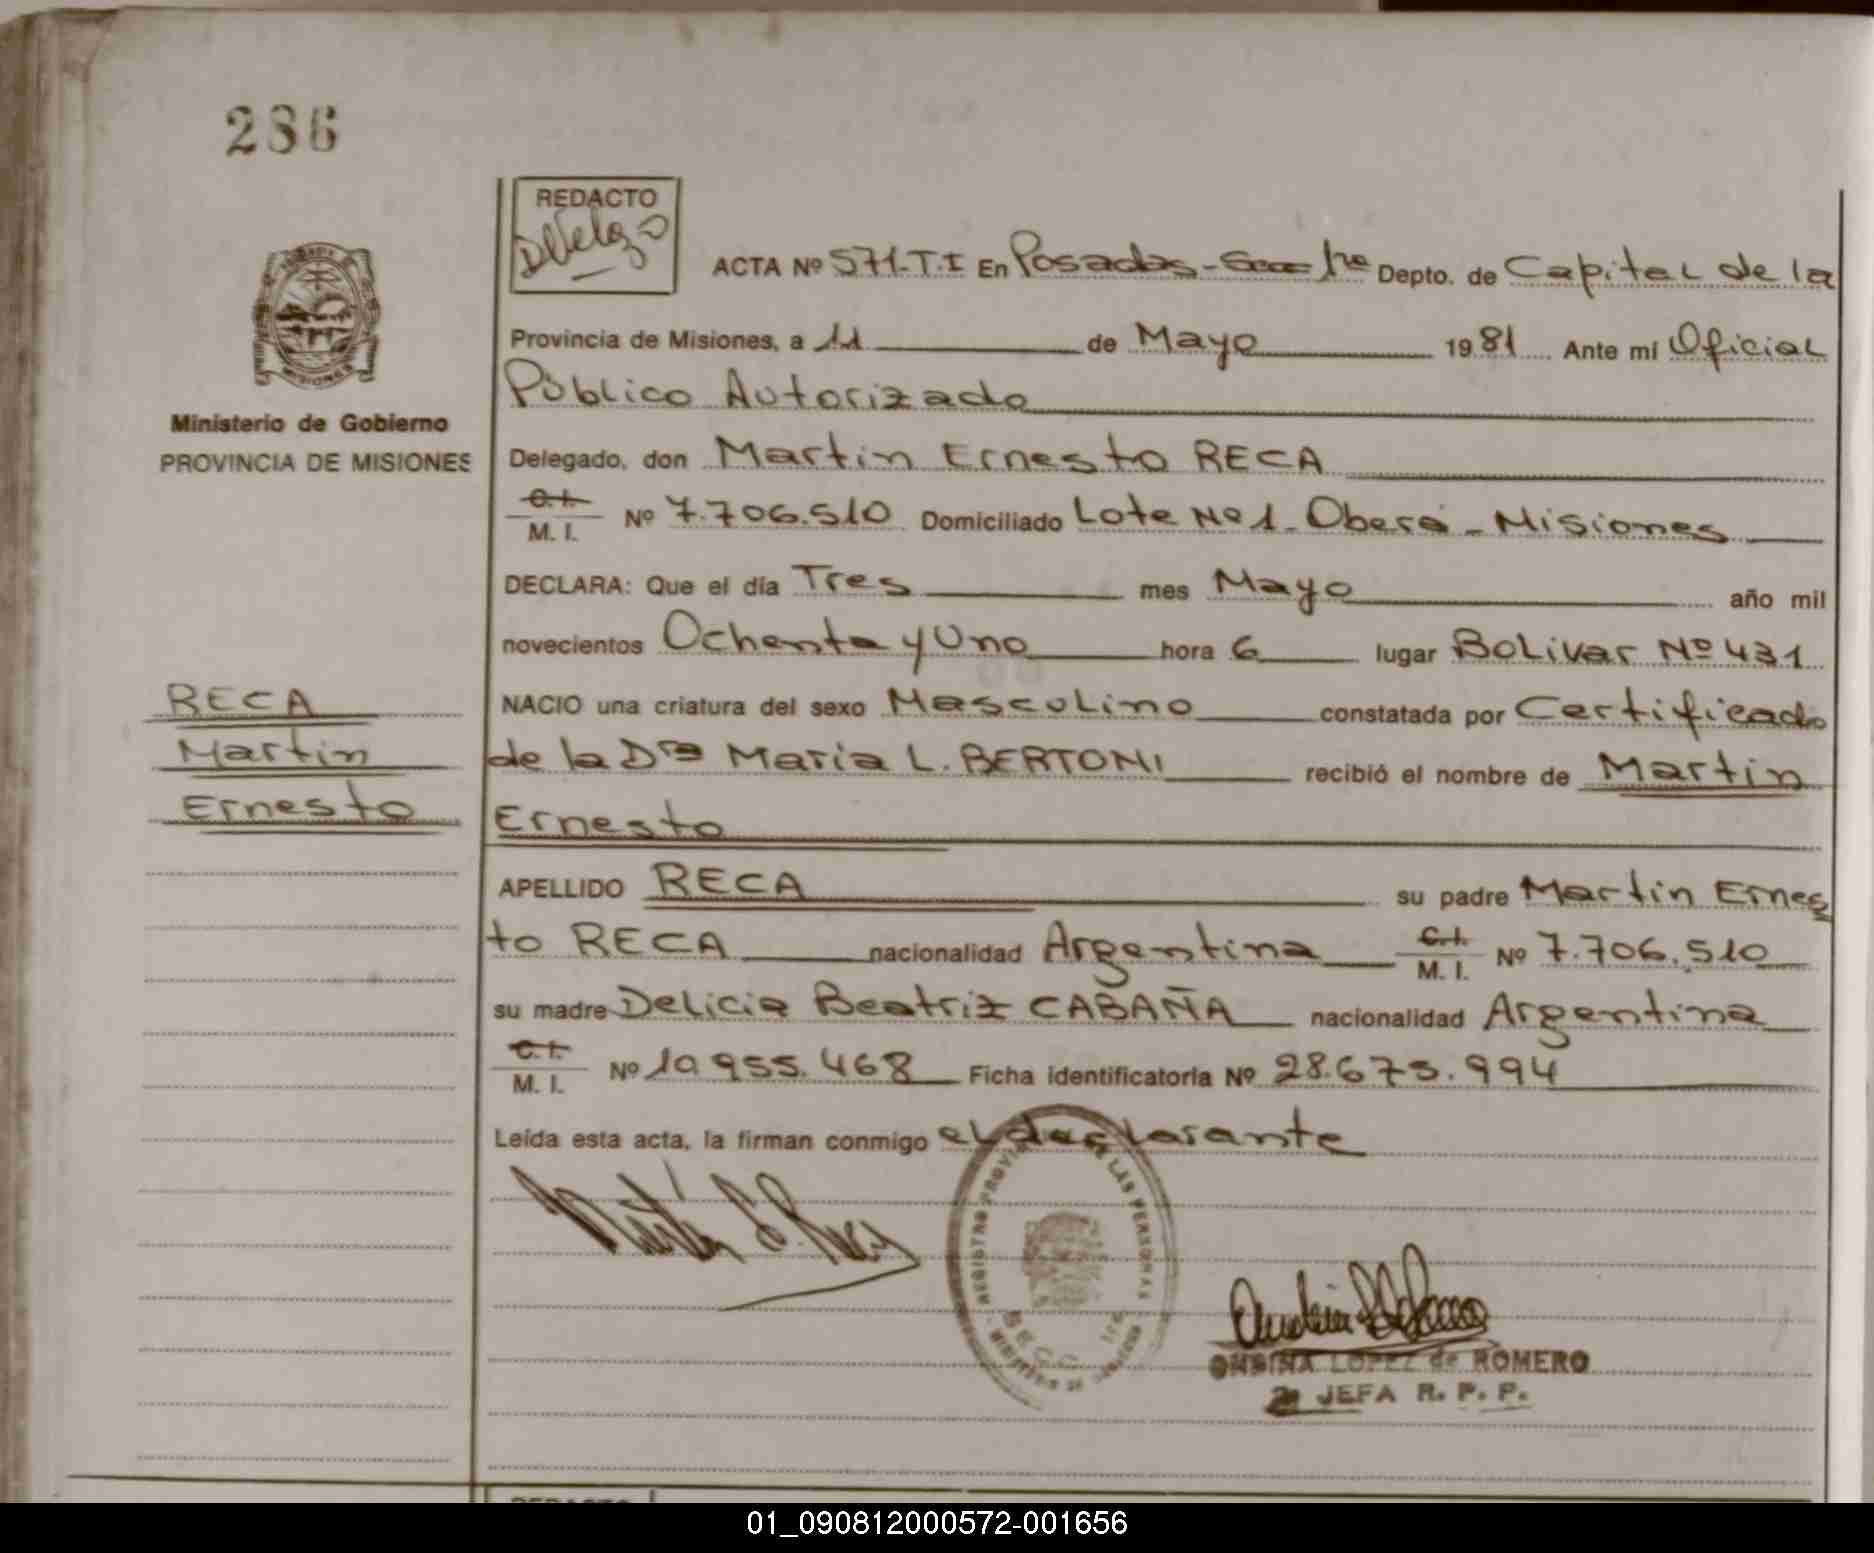 286
REDACTO
Delelgo
ACTA Nº 571-T.I En Posadas - Secc 1ra Depto. de Capital de la
Provincia de Misiones, a 11 de Mayo 1981 Ante mí Oficial
Público Autorizado
MISIONES
Ministerio de Gobierno
PROVINCIA DE MISIONES
Delegado, don Martin Ernesto RECA
C. I.
M. I. Nº 7.706.510 Domiciliado Lote Nº 1 - Oberá - Misiones
DECLARA: Que el día Tres mes Mayo año mil
novecientos Ochenta y Uno hora 6 lugar Bolivar Nº 431
RECA
NACIO una criatura del sexo Masculino constatada por Certificado
Martin
de la Dra Maria L. BERTONI recibió el nombre de Martin
Ernesto
Ernesto
APELLIDO RECA su padre Martin Ernes
to RECA nacionalidad Argentina C. I. M. I. Nº 7.706.510
su madre Delicia Beatriz CABAÑA nacionalidad Argentina
C. I.
M. I. Nº 10.955.468 Ficha identificatoria Nº 28.675.994
Leída esta acta, la firman conmigo el declarante
REGISTRO PROVINCIAL DE LAS PERSONAS
SECC. 1ra
LOPEZ de ROMERO
JEFA R. P. P.
REDACTO
01_090812000572-001656